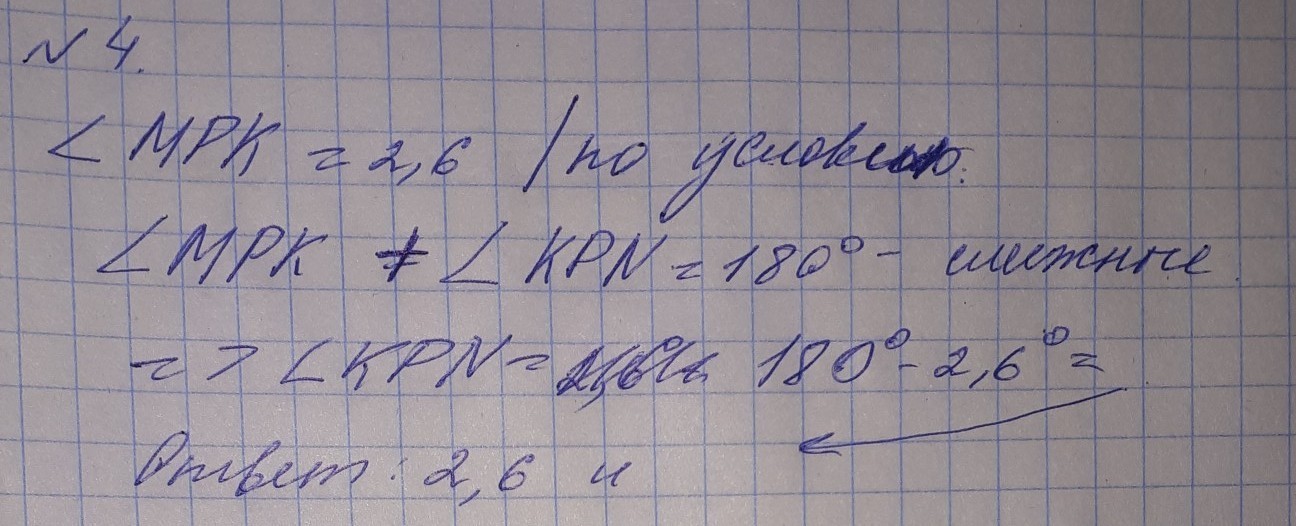 № 4.
∠ MPK = 2,6 / по условию.
∠ MPK + ∠ KPN = 180° - смежные.
=> ∠ KPN = 180° - 2,6° =
Ответ: 2,6 и